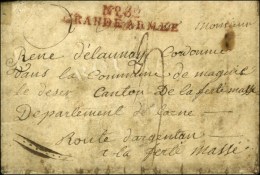 No. 82
GRANDE-ARMÉE
Monsieur
René délaunay Cordonnier
dans la Commune de magni
le deser Canton de la ferté massé
Departement de Lorne
Route d'argentan
a la ferté massé